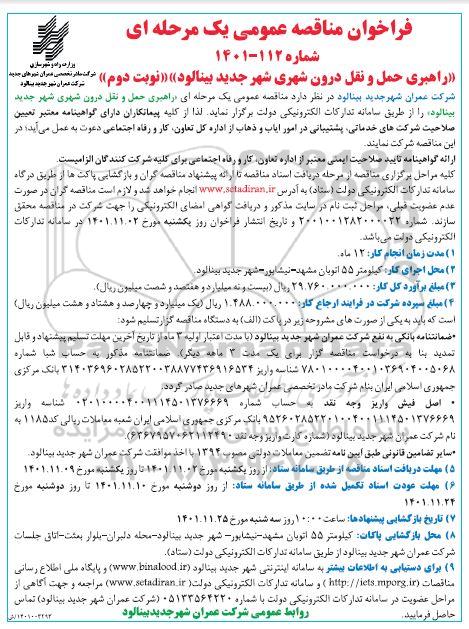 فراخوان مناقصه عمومی یک مرحله ای
شماره ۱۱۲-۱۴۰۱
«راهبری حمل و نقل درون شهری شهر جدید بینالود»«نوبت دوم»
وزارت راه و شهرسازی
شرکت مادر تخصصی عمران شهرهای جدید
شرکت عمران شهر جدید بینالود
شرکت عمران شهرجدید بینالود در نظر دارد مناقصه عمومی یک مرحله ای «راهبری حمل و نقل درون شهری شهر جدید
بینالود» را از طریق سامانه تدارکات الکترونیکی دولت برگزار نماید. لذا از کلیه پیمانکاران دارای گواهینامه معتبر تعیین
صلاحیت شرکت های خدماتی، پشتیبانی در امور ایاب و ذهاب از اداره کل تعاون، کار و رفاه اجتماعی دعوت به عمل می‌آید؛ در
این مناقصه شرکت نمایند.
ارائه گواهینامه تایید صلاحیت ایمنی معتبر از اداره تعاون، کار و رفاه اجتماعی برای کلیه شرکت کنندگان الزامیست.
کلیه مراحل برگزاری مناقصه از مرحله دریافت اسناد مناقصه تا ارائه پیشنهاد مناقصه گران و بازگشایی پاکت ها از طریق درگاه
سامانه تدارکات الکترونیکی دولت (ستاد) به آدرس www.setadiran.ir انجام خواهد شد و لازم است مناقصه گران در صورت
عدم عضویت قبلی، مراحل ثبت نام در سایت مذکور و دریافت گواهی امضای الکترونیکی را جهت شرکت در مناقصه محقق
سازند. شماره ۲۰۰۱۰۰۱۲۸۲۰۰۰۰۲۲ و تاریخ انتشار فراخوان روز یکشنبه مورخ ۱۴۰۱.۱۱.۰۲ در سامانه تدارکات
الکترونیکی دولت می‌باشد.
۱) مدت زمان انجام کار: ۱۲ ماه.
۲) محل اجرای کار: کیلومتر ۵۵ اتوبان مشهد-نیشابور-شهر جدید بینالود.
۳) مبلغ برآورد کل کار: ۲۹.۷۶۰.۰۰۰.۰۰۰ ریال (بیست و نه میلیارد و هفتصد و شصت میلیون ریال).
۴) مبلغ سپرده شرکت در فرایند ارجاع کار: ۱.۴۸۸.۰۰۰.۰۰۰ ریال (یک میلیارد و چهارصد و هشتاد و هشت میلیون ریال)
است که باید به یکی از صورت های مشروحه زیر در پاکت (الف) به دستگاه مناقصه گزار تسلیم شود:
•ضمانتنامه بانکی به نفع شرکت عمران شهر جدید بینالود (با مدت اعتبار اولیه ۳ ماه از تاریخ آخرین مهلت تسلیم پیشنهاد و قابل
تمدید بنا به درخواست مناقصه گزار برای یک مدت ۳ ماهه دیگر). ضمانتنامه مذکور به حساب شبا شماره
بانک مرکزی
جمهوری اسلامی ایران بنام شرکت مادر تخصصی عمران شهرهای جدید صادر گردد.
• اصل فیش واریز وجه نقد به حساب شماره
بانک مرکزی جمهوری اسلامی ایران شعبه معاملات ریالی کد۱۱۸۵ به
نام شرکت عمران شهر جدید بینالود (شماره کارت واریز وجه نقد
•سایر تضامین قانونی طبق آیین نامه تضمین معاملات دولتی مصوب ۱۳۹۴ با اخذ موافقت شرکت عمران شهر جدید بینالود.
۵) مهلت دریافت اسناد مناقصه از طریق سامانه ستاد: از روز یکشنبه مورخ ۱۴۰۱.۱۱.۰۲ تا روز یکشنبه مورخ ۱۴۰۱.۱۱.۰۹
۶) مهلت عودت اسناد تکمیل شده از طریق سامانه ستاد: از روز دوشنبه مورخ ۱۴۰۱.۱۱.۱۰ تا روز دوشنبه مورخ
۱۴۰۱.۱۱.۲۴
۷) تاریخ بازگشایی پیشنهادها: ساعت۱۰:۰۰ روز سه شنبه مورخ ۱۴۰۱.۱۱.۲۵
۸) محل بازگشایی پاکات: کیلومتر ۵۵ اتوبان مشهد-نیشابور- شهر جدید بینالود-محله دلبران-بلوار بعثت-اتاق جلسات
شرکت عمران شهر جدید بینالود از طریق سامانه تدارکات الکترونیکی دولت (ستاد).
۹) برای دستیابی به اطلاعات بیشتر به سامانه اینترنتی شهر جدید بینالود (www.binalood.ir) و پایگاه ملی اطلاع رسانی
مناقصات (http://iets.mporg.ir) و سامانه تدارکات الکترونیکی دولت (www.setadiran.ir) مراجعه و جهت آگاهی از
مراحل عضویت در سامانه تدارکات الکترونیکی دولت با شماره ۰۵۱۳۳۵۶۴۲۲۰ (شرکت عمران شهر جدید بینالود) تماس
حاصل فرمایید.
روابط عمومی شرکت عمران شهرجدیدبینالود